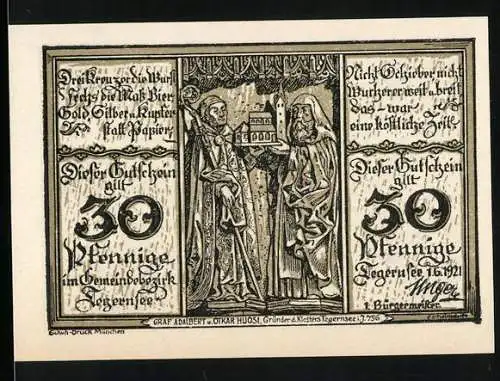 Drei Kreuzer die Wurst
sechs die Maß Bier
Gold Silber u. Kupfer
statt Papier
Dieser Gutschein
gilt
30
Pfennige
im Gemeindebezirk
Tegernsee
Nicht Schieber nicht
Wucherer weit u. breit
das war
eine köstliche Zeit
Dieser Gutschein
gilt
30
Pfennige
Tegernsee 1.6.1921
1. Bürgermeister
GRAF ADALBERT u. OTKAR HUOSI, Gründer d. Klosters Tegernsee i. J. 736
Druck München